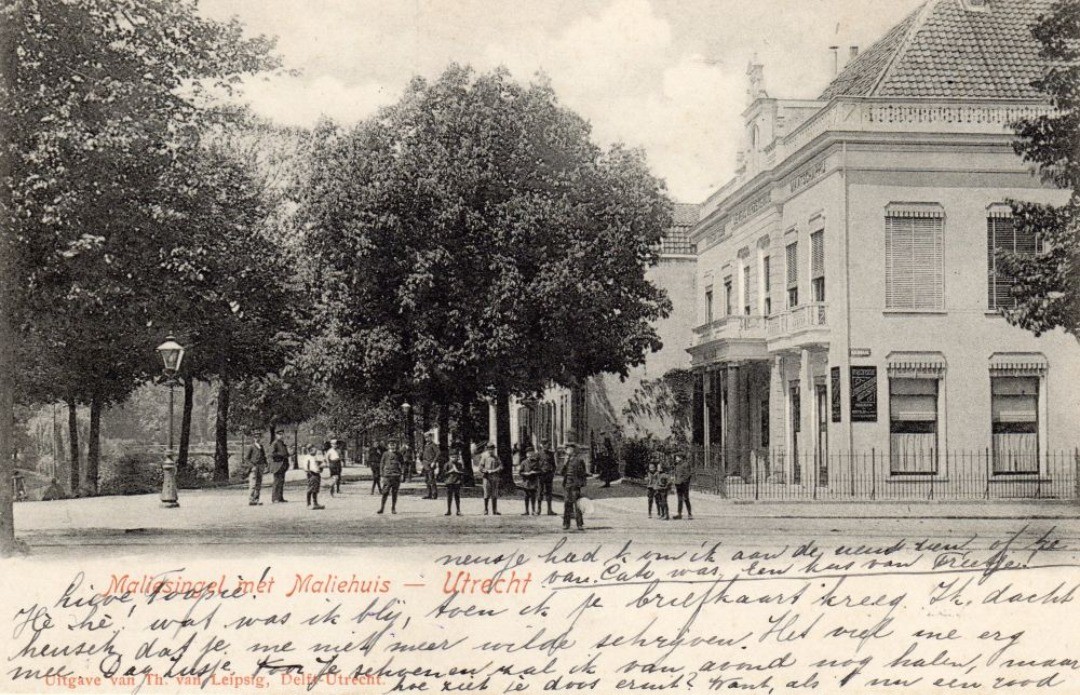 MAATSCHAPPIJ
Maliesingel met Maliehuis — Utrecht
neusje had 't om ik aan de
van Cato was. Een kus van
Lieve
He he! wat was ik blij, toen ik je briefkaart kreeg. Ik dacht
heusch dat je me niet meer wilde schrijven. Het viel me erg
mee. Dag Je schoenen zal ik van avond nog halen, maar
Uitgave van Th. van Leipsig, Delft-Utrecht.
hoe ziet je doos eruit? Want, als 't nu een rood